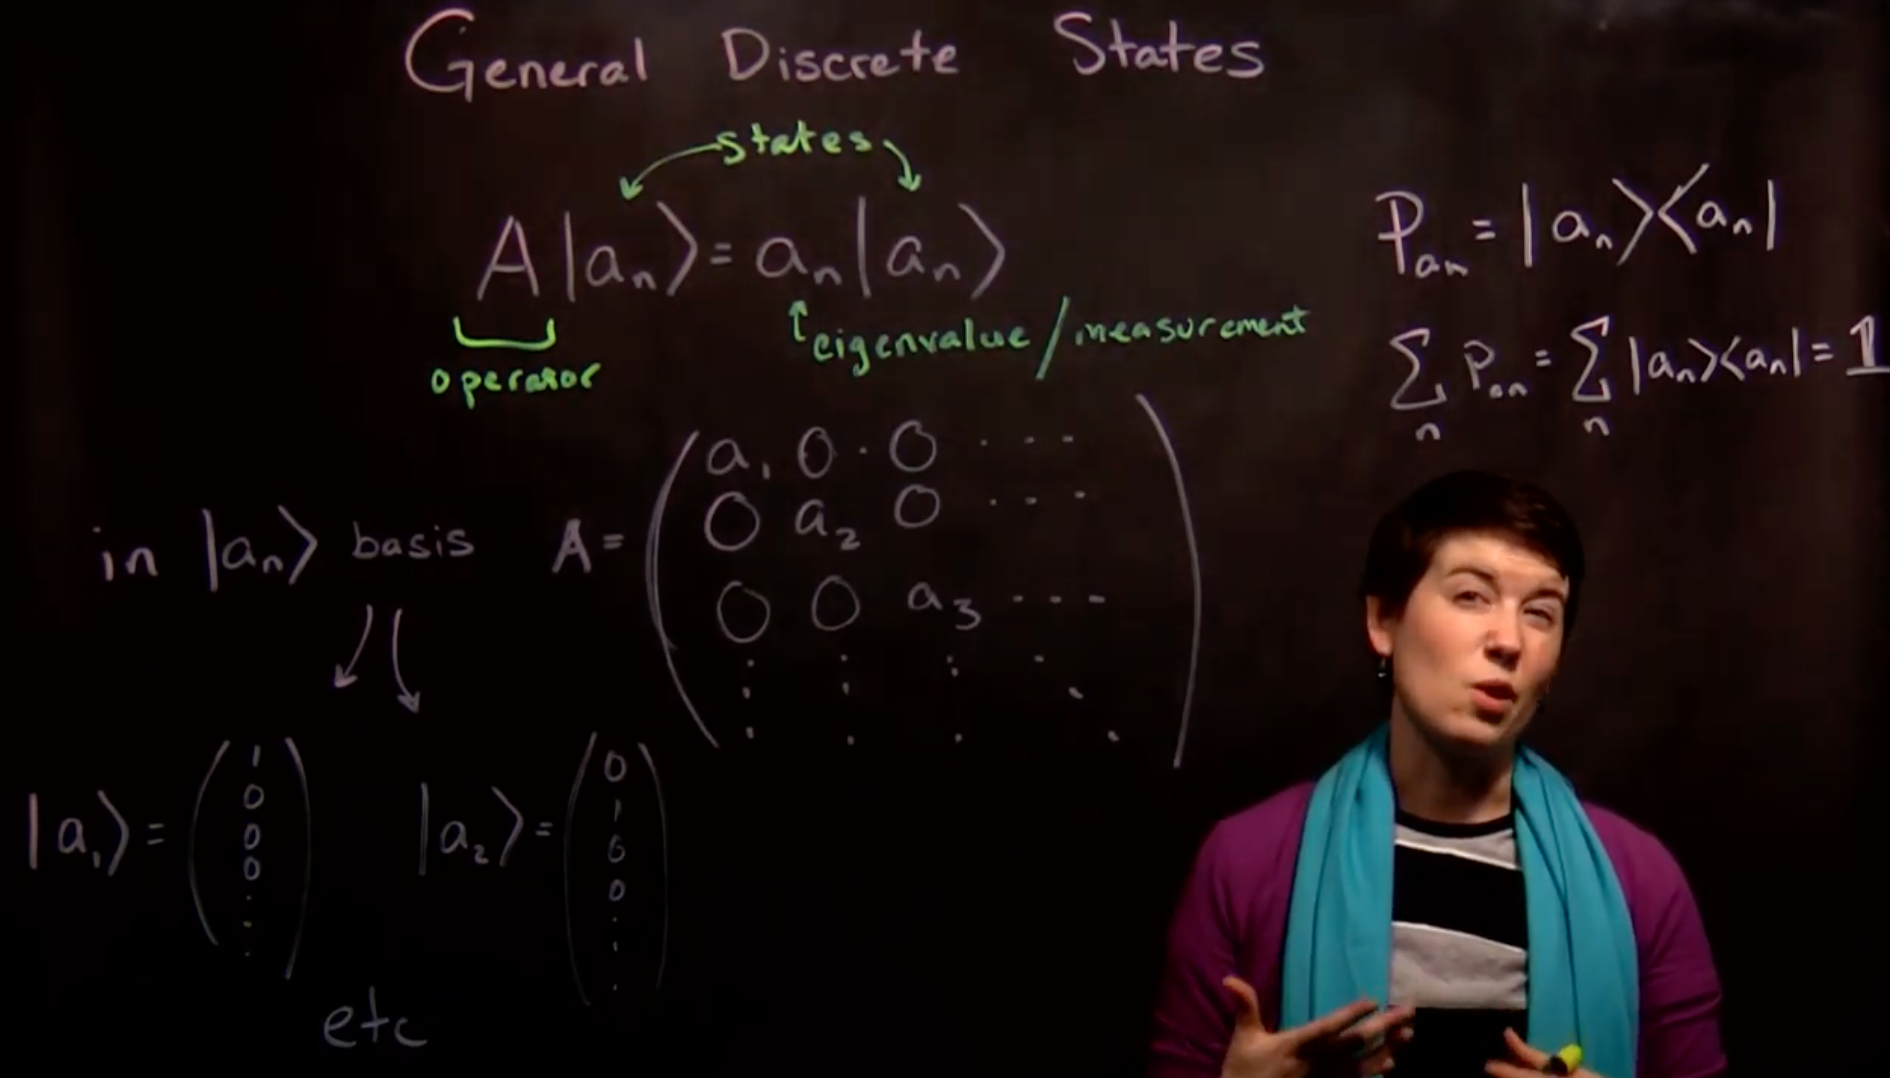 General Discrete States
states
A|aₙ⟩ = aₙ|aₙ⟩
operator
eigenvalue/measurement
Pₐₙ = |aₙ⟩⟨aₙ|
∑ₙ Pₐₙ = ∑ₙ |aₙ⟩⟨aₙ| = 𝟙
in |aₙ⟩ basis
A =
a₁ 0 · 0 · · · ·
0 a₂ 0 · · ·
0 0 a₃ - - -
⋮ ⋮ ⋮ ⋱
|a₁⟩ =
1
0
0
0
⋮
|a₂⟩ =
0
1
0
0
⋮
etc